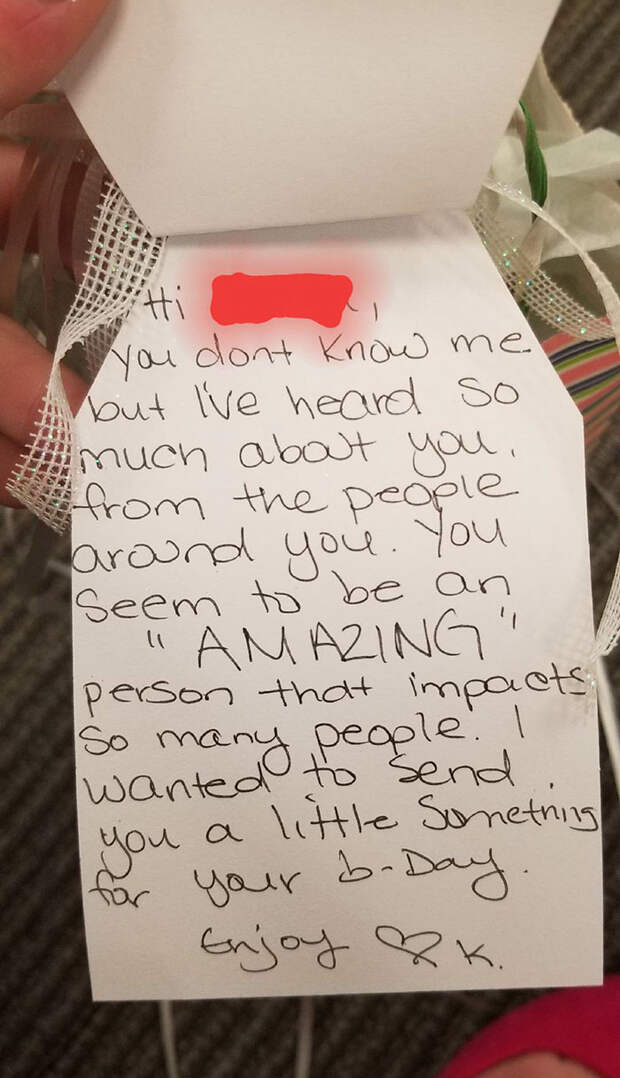 Hi ,
you dont know me
but I've heard so
much about you,
from the people
around you. You
seem to be an
"AMAZING"
person that impacts
so many people. I
wanted to send
you a little something
for your b-Day.
Enjoy ♡ K.